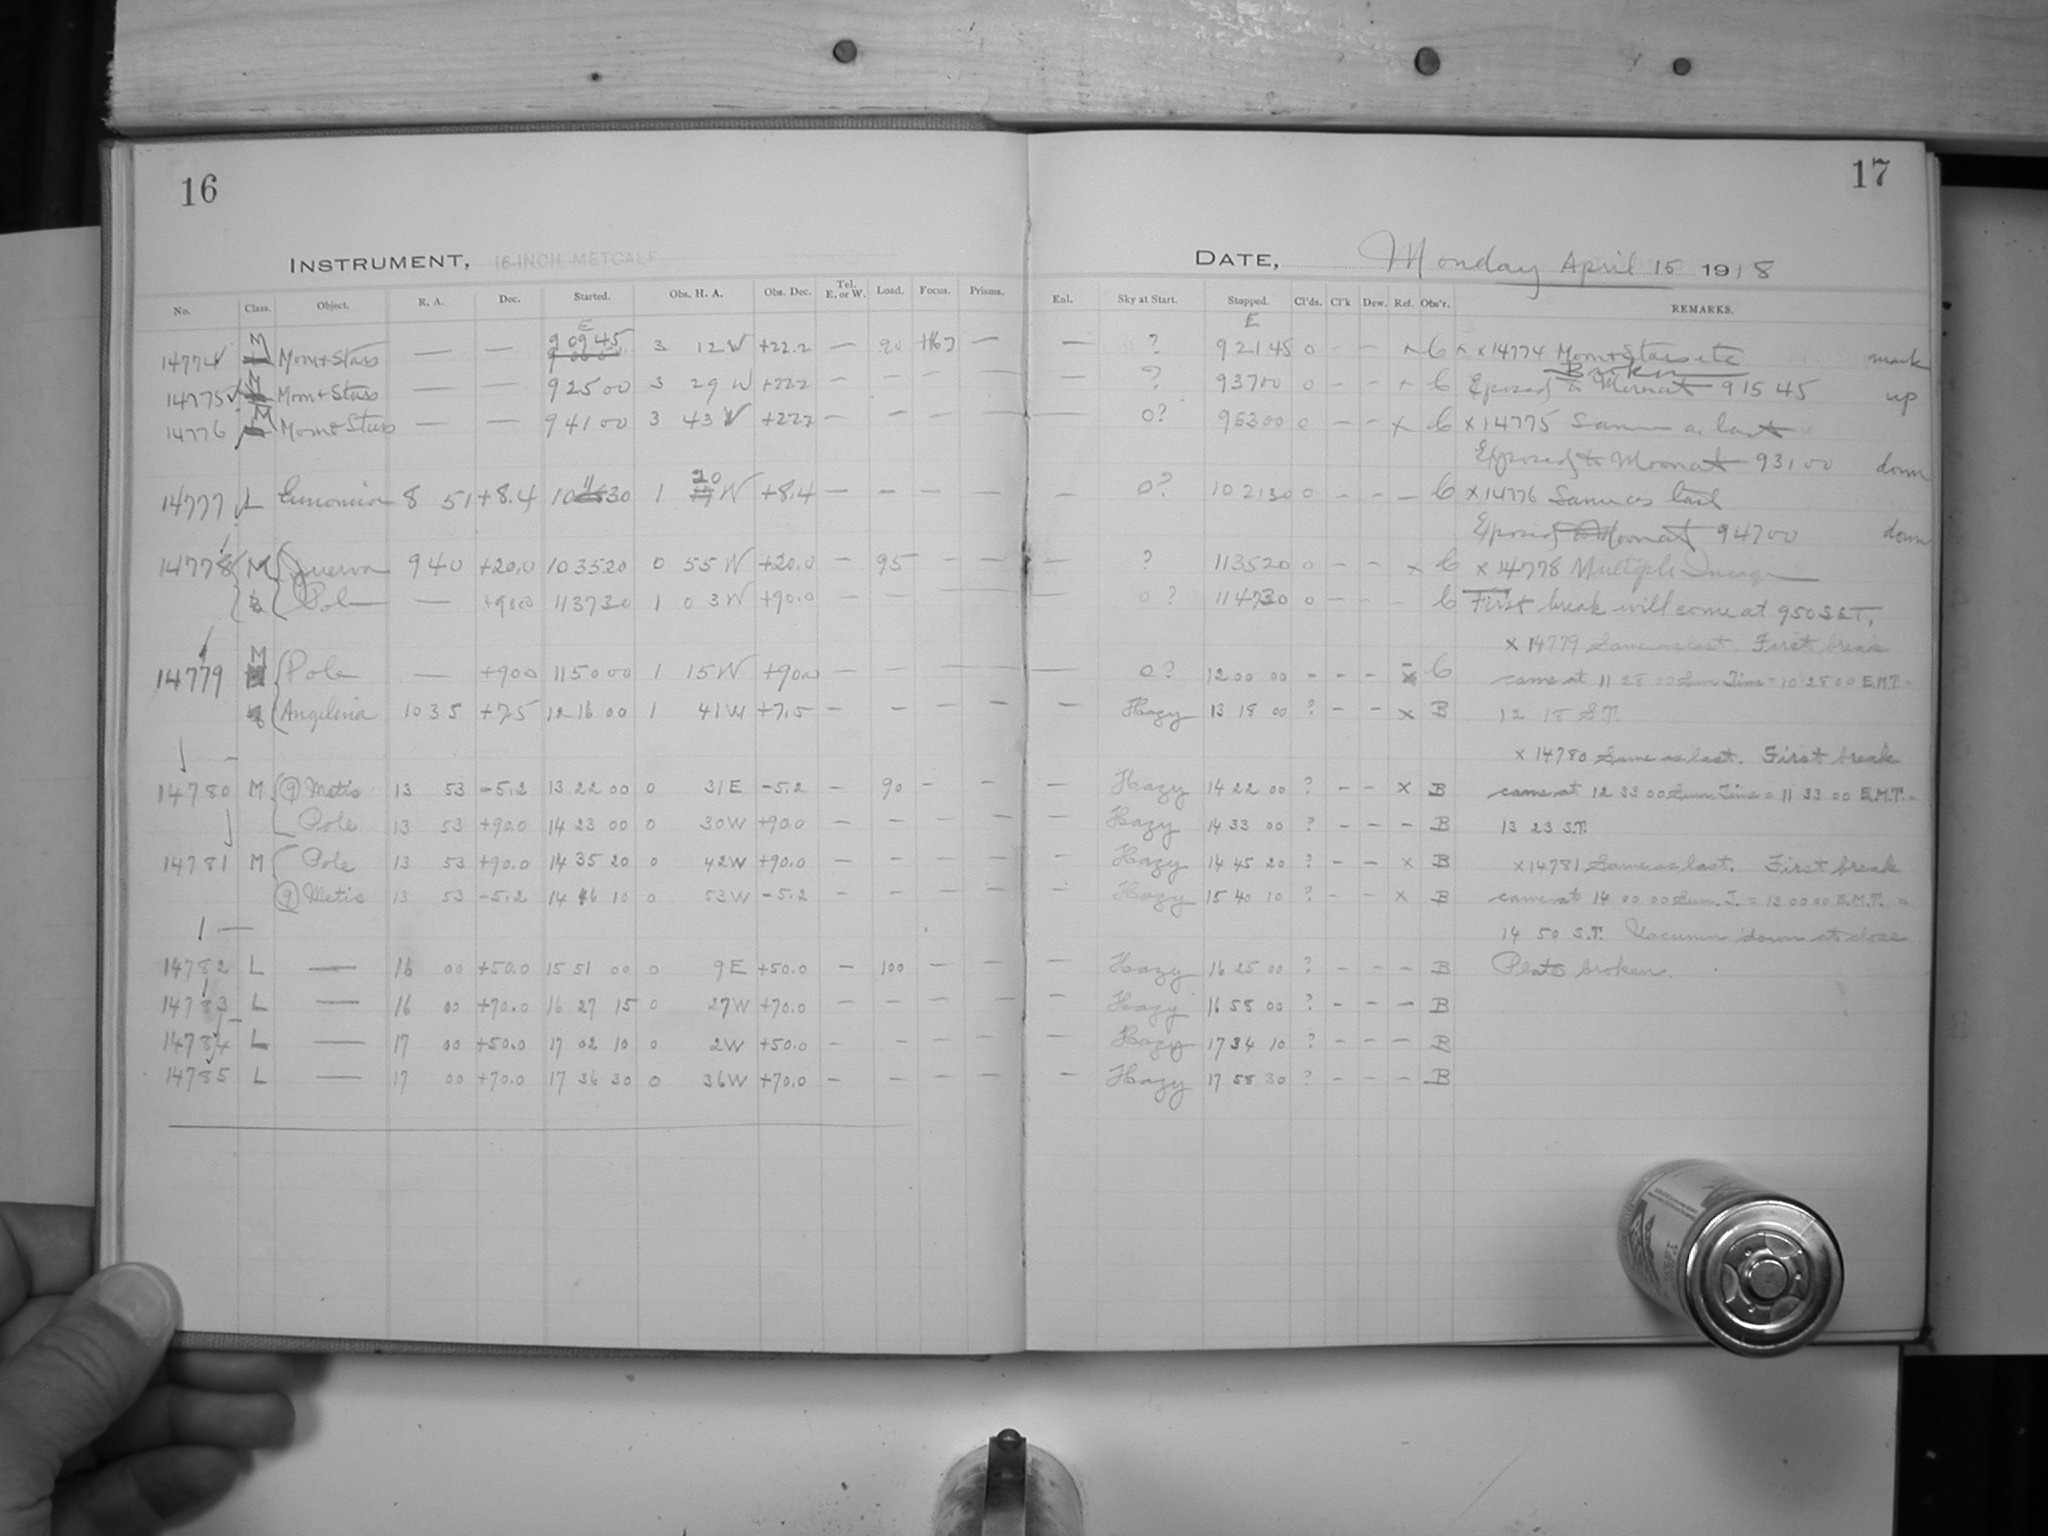 16
17
INSTRUMENT, 16-INCH METCALF
DATE, Monday April 15 1918
No. Class. Object. R. A. Dec. Started. Obs. H. A. Obs. Dec. Tel. E. or W. Load. Focus. Prisms. Enl. Sky at Start. Stopped. Cl'ds. Cl'k Dew. Ref. Obs'r. REMARKS.
E E
14774 M Moon+Stars — — 9 09 45 3 12 W +22.2 — 90 — — ? 9 21 45 0 - - C x 14774 Moon+Stars etc mark
Broken
14775 Moon+Stars — — 9 25 00 3 29 W +22.2 — — — — — ? 9 37 00 0 - - C Exposed to Moon at 9 15 45 up
14776 M Moon+Stars — — 9 41 00 3 43 W +22.2 — — — — — 0? 9 53 00 0 - - x C x 14775 Same as last
Exposed to Moon at 9 31 00 down
14777 L Eunomia 8 51 +8.4 10 11 30 1 20 W +8.4 — — — — — 0? 10 21 30 0 - - - C x 14776 Same as last
Exposed to Moon at 9 47 00 down
14778 M Juewa 9 40 +20.0 10 35 20 0 55 W +20.0 — 95 — — — ? 11 35 20 0 - - x C x 14778 Multiple Image
Pole — +90.0 11 37 30 1 03 W +90.0 — — — — — 0? 11 47 30 0 - - - C First break will come at 9 50 S.E.T.
x 14779 Same as last. First break
14779 M Pole — +90.0 11 50 00 1 15 W +90.0 — — — — — 0? 12 00 00 - - - C came at 11 28 00 Sum. Time = 10 28 00 E.M.T. =
Angelina 10 35 +7.5 12 16 00 1 41 W +7.5 — — — — — Hazy 13 18 00 ? - - x B 12 18 S.T.
x 14780 Same as last. First break
14780 M (9) Metis 13 53 -5.2 13 22 00 0 31 E -5.2 — 90 — — — Hazy 14 22 00 ? - - x B came at 12 33 00 Sum. Time = 11 33 00 E.M.T. =
Pole 13 53 +90.0 14 23 00 0 30 W +90.0 — — — — — Hazy 14 33 00 ? - - - B 13 23 S.T.
14781 M Pole 13 53 +90.0 14 35 20 0 42 W +90.0 — — — — — Hazy 14 45 20 ? - - x B x 14781 Same as last. First break
(9) Metis 13 53 -5.2 14 46 10 0 53 W -5.2 — — — — — Hazy 15 40 10 ? - - x B came at 14 00 00 Sum. T. = 13 00 00 E.M.T. =
14 50 S.T. Vacuum down at close
14782 L — 16 00 +50.0 15 51 00 0 9 E +50.0 — 100 — — — Hazy 16 25 00 ? - - - B Plate broken.
14783 L — 16 00 +70.0 16 27 15 0 27 W +70.0 — — — — — Hazy 16 58 00 ? - - - B
14784 L — 17 00 +50.0 17 02 10 0 2 W +50.0 — — — — — Hazy 17 34 10 ? - - - B
14785 L — 17 00 +70.0 17 36 30 0 36 W +70.0 — — — — — Hazy 17 58 30 ? - - - B